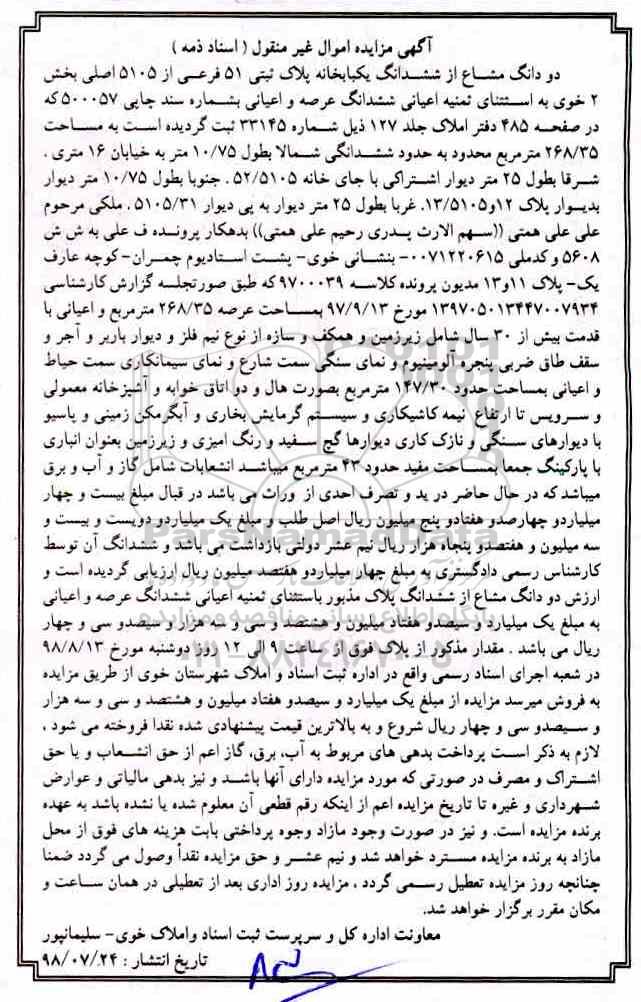 آگهی مزایده اموال غیر منقول ( اسناد ذمه )
دو دانگ مشاع از ششدانگ یکبابخانه پلاک ثبتی ۵۱ فرعی از ۵۱۰۵ اصلی بخش
۲ خوی به استثنای ثمنیه اعیانی ششدانگ عرصه و اعیانی بشماره سند چاپی ۵۰۰۰۵۷ که
در صفحه ۴۸۵ دفتر املاک جلد ۱۲۷ ذیل شماره ۳۳۱۴۵ ثبت گردیده است به مساحت
۲۶۸/۳۵ مترمربع محدود به حدود ششدانگی شمالا بطول ۱۰/۷۵ متر به خیابان ۱۶ متری .
شرقا بطول ۲۵ متر دیوار اشتراکی با جای خانه ۵۲/۵۱۰۵ . جنوبا بطول ۱۰/۷۵ متر دیوار
بدیوار پلاک ۱۲و۱۳/۵۱۰۵. غربا بطول ۲۵ متر دیوار به پی دیوار ۵۱۰۵/۳۱ . ملکی مرحوم
علی علی همتی ((سهم الارث پدری رحیم علی همتی)) بدهکار پرونده ف علی به ش ش
۵۶۰۸ و کدملی ۰۰۷۱۲۲۰۶۱۵- بنشانی خوی- پشت استادیوم چمران- کوچه عارف
یک- پلاک ۱۱و۱۳ مدیون پرونده کلاسه ۹۷۰۰۰۳۹ که طبق صورتجلسه گزارش کارشناسی
۱۳۹۷۰۵۰۱۳۴۴۷۰۰۷۹۳۴ مورخ ۹۷/۹/۱۳ بمساحت عرصه ۲۶۸/۳۵ مترمربع و اعیانی با
قدمت بیش از ۳۰ سال شامل زیرزمین و همکف و سازه از نوع نیم فلز و دیوار باربر و آجر و
سقف طاق ضربی پنجره آلومینیوم و نمای سنگی سمت شارع و نمای سیمانکاری سمت حیاط
و اعیانی بمساحت حدود ۱۴۷/۳۰ مترمربع بصورت هال و دو اتاق خوابه و آشپزخانه معمولی
و سرویس تا ارتفاع نیمه کاشیکاری و سیستم گرمایش بخاری و آبگرمکن زمینی و پاسیو
با دیوارهای سنگی و نازک کاری دیوارها گچ سفید و رنگ امیزی و زیرزمین بعنوان انباری
با پارکینگ جمعا بمساحت مفید حدود ۴۳ مترمربع میباشد انشعابات شامل گاز و آب و برق
میباشد که در حال حاضر در ید و تصرف احدی از وراث می باشد در قبال مبلغ بیست و چهار
میلیاردو چهارصدو هفتادو پنج میلیون ریال اصل طلب و مبلغ یک میلیاردو دویست و بیست و
سه میلیون و هفتصدو پنجاه هزار ریال نیم عشر دولتی بازداشت می باشد و ششدانگ آن توسط
کارشناس رسمی دادگستری به مبلغ چهار میلیاردو هفتصد میلیون ریال ارزیابی گردیده است و
ارزش دو دانگ مشاع از ششدانگ پلاک مذبور باستثنای ثمنیه اعیانی ششدانگ عرصه و اعیانی
به مبلغ یک میلیارد و سیصدو هفتاد میلیون و هشتصد و سی و سه هزار و سیصدو سی و چهار
ریال می باشد . مقدار مذکور از پلاک فوق از ساعت ۹ الی ۱۲ روز دوشنبه مورخ ۹۸/۸/۱۳
در شعبه اجرای اسناد رسمی واقع در اداره ثبت اسناد و املاک شهرستان خوی از طریق مزایده
به فروش میرسد مزایده از مبلغ یک میلیارد و سیصدو هفتاد میلیون و هشتصد و سی و سه هزار
و سیصدو سی و چهار ریال شروع و به بالاترین قیمت پیشنهادی شده نقدا فروخته می شود .
لازم به ذکر است پرداخت بدهی های مربوط به آب، برق، گاز اعم از حق انشعاب و یا حق
اشتراک و مصرف در صورتی که مورد مزایده دارای آنها باشد و نیز بدهی مالیاتی و عوارض
شهرداری و غیره تا تاریخ مزایده اعم از اینکه رقم قطعی آن معلوم شده یا نشده باشد به عهده
برنده مزایده است. و نیز در صورت وجود مازاد وجوه پرداختی بابت هزینه های فوق از محل
مازاد به برنده مزایده مسترد خواهد شد و نیم عشر و حق مزایده نقداً وصول می گردد ضمنا
چنانچه روز مزایده تعطیل رسمی گردد ، مزایده روز اداری بعد از تعطیلی در همان ساعت و
مکان مقرر برگزار خواهد شد.
معاونت اداره کل و سرپرست ثبت اسناد واملاک خوی- سلیمانپور
تاریخ انتشار : ۹۸/۰۷/۲۴
ParsNamadData
پایگاه اطلاع رسانی مناقصه و مزایده
۰۲۱-۸۸۳۴۹۶۷۰-۵